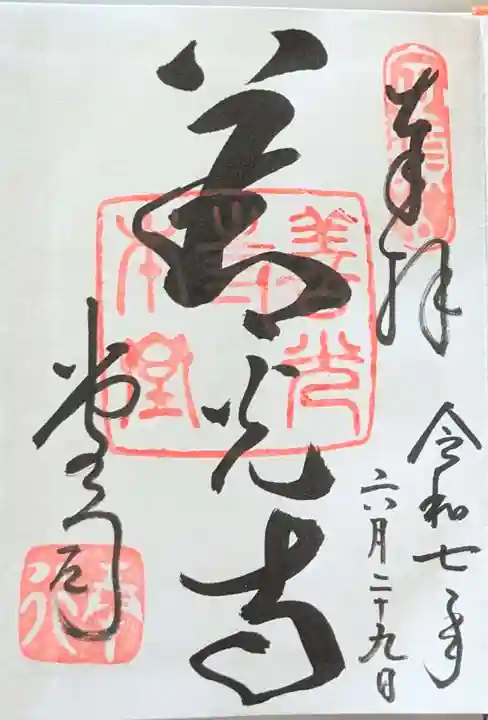 奉拝
令和七年
六月二十九日
善光寺
善光
寺
本堂